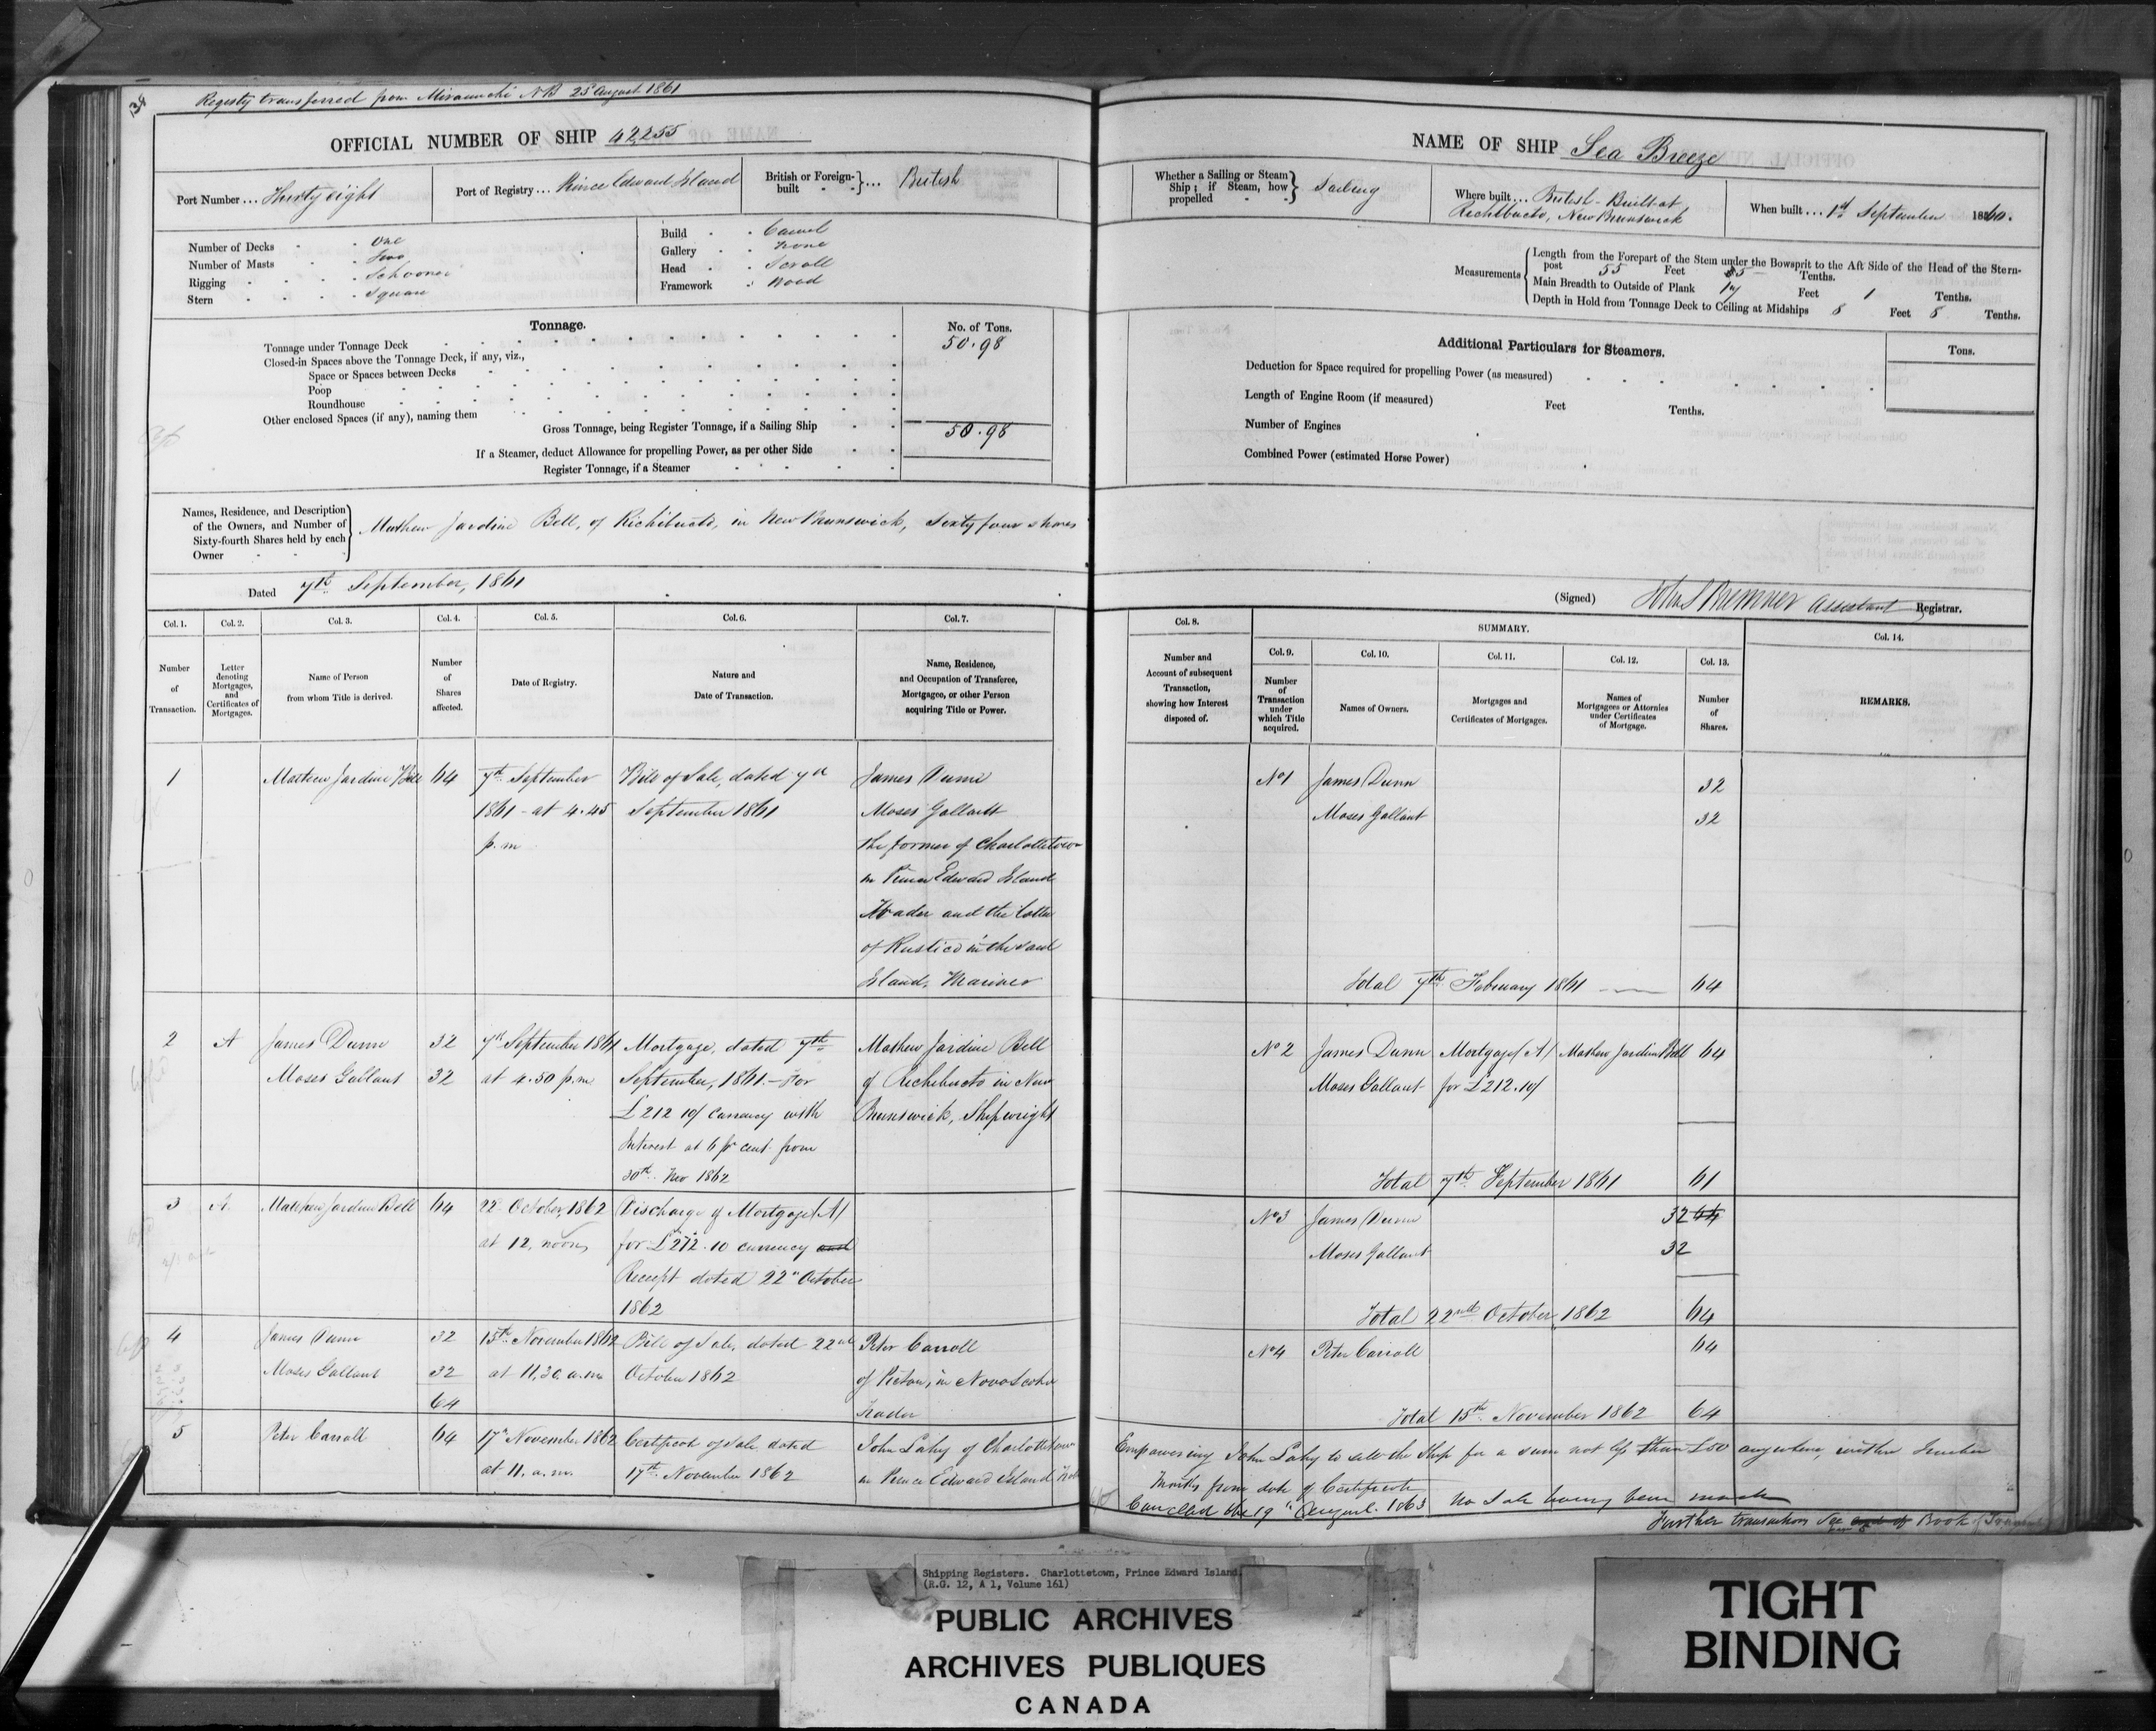 Registy transferred from Miramichi NB 25 August 1861
OFFICIAL NUMBER OF SHIP 42255
Port Number ... Thirty eight
Port of Registry ... Prince Edward Island
British or Foreign-built ... British
Number of Decks One
Number of Masts Two
Rigging Schooner
Stern Square
Build Carvel
Gallery None
Head Scroll
Framework Wood
Tonnage.
No. of Tons.
Tonnage under Tonnage Deck 50.98
Closed-in Spaces above the Tonnage Deck, if any, viz.,
Space or Spaces between Decks
Poop
Roundhouse
Other enclosed Spaces (if any), naming them
Gross Tonnage, being Register Tonnage, if a Sailing Ship 50.98
If a Steamer, deduct Allowance for propelling Power, as per other Side
Register Tonnage, if a Steamer
Names, Residence, and Description
of the Owners, and Number of
Sixty-fourth Shares held by each
Owner
Mathew Jardine Bell, of Richibucto, in New Brunswick, Sixty four shares
Dated 7th September, 1861
Col. 1. Col. 2. Col. 3. Col. 4. Col. 5. Col. 6. Col. 7.
Number of Transaction.
Letter denoting Mortgages, and Certificates of Mortgages.
Name of Person from whom Title is derived.
Number of Shares affected.
Date of Registry.
Nature and Date of Transaction.
Name, Residence, and Occupation of Transferee, Mortgagee, or other Person acquiring Title or Power.
1
Mathew Jardine Bell
64
7th September
1861 - at 4.45
p.m
Bill of Sale, dated 7th
September 1861
James Dunn
Moses Gallant
the former of Charlottetown
in Prince Edward Island
Trader and the latter
of Rustico in the said
Island, Mariner
2
A
James Dunn 32
Moses Gallant 32
7th September 1861
at 4.50 p.m.
Mortgage, dated 7th
September, 1861 - For
£212 10/ currency with
Interest at 6 pr cent from
30th Nov 1862
Mathew Jardine Bell
of Richibucto in New
Brunswick, Shipwright
3
A
Mathew Jardine Bell
64
22 October, 1862
at 12, noon,
Discharge of Mortgage (A)
for £212.10 currency and
Receipt dated 22" October
1862
4
James Dunn 32
Moses Gallant 32
64
15th November 1862
at 11,30, a.m
Bill of Sale, dated 22nd
October 1862
Peter Carroll
of Pictou, in Nova Scotia
Trader
5
Peter Carroll
64
17th November 1862
at 11. a.m.
Certificate of Sale dated
17th November 1862
John Lahy of Charlottetown
in Prince Edward Island
NAME OF SHIP Sea Breeze
Whether a Sailing or Steam Ship; if Steam, how propelled Sailing
Where built ... British - Built at
Richibucto, New Brunswick
When built ... 1st September 1860.
Measurements
Length from the Forepart of the Stem under the Bowsprit to the Aft Side of the Head of the Stern-
post 55 Feet 85 Tenths.
Main Breadth to Outside of Plank 17 Feet 1 Tenths.
Depth in Hold from Tonnage Deck to Ceiling at Midships 8 Feet 8 Tenths.
Additional Particulars for Steamers.
Tons.
Deduction for Space required for propelling Power (as measured)
Length of Engine Room (if measured) Feet Tenths.
Number of Engines
Combined Power (estimated Horse Power)
(Signed) John S Bremner Assistant Registrar.
Col. 8.
SUMMARY.
Col. 9. Col. 10. Col. 11. Col. 12. Col. 13. Col. 14.
Number and Account of subsequent Transaction, showing how Interest disposed of.
Number of Transaction under which Title acquired.
Names of Owners.
Mortgages and Certificates of Mortgages.
Names of Mortgagees or Attornies under Certificates of Mortgage.
Number of Shares.
REMARKS.
No 1 James Dunn 32
Moses Gallant 32
Total 7th February 1861 64
No 2 James Dunn Mortgage (A) Mathew Jardine Bell 64
Moses Gallant for £212.10/
Total 7th September 1861 61
No 3 James Dunn 32 64
Moses Gallant 32
Total 22nd October, 1862 64
No 4 Peter Carroll 64
Total 15th November 1862 64
Empowering John Lahy to sell the Ship for a sum not less than £50 anywhere, within Twelve
Months from date of Certificate
Cancelled the 19" August 1863 No Sale having been made
Further transactions See end of Book
Shipping Registers. Charlottetown, Prince Edward Island.
(R.G. 12, A 1, Volume 161)
PUBLIC ARCHIVES
ARCHIVES PUBLIQUES
CANADA
TIGHT
BINDING